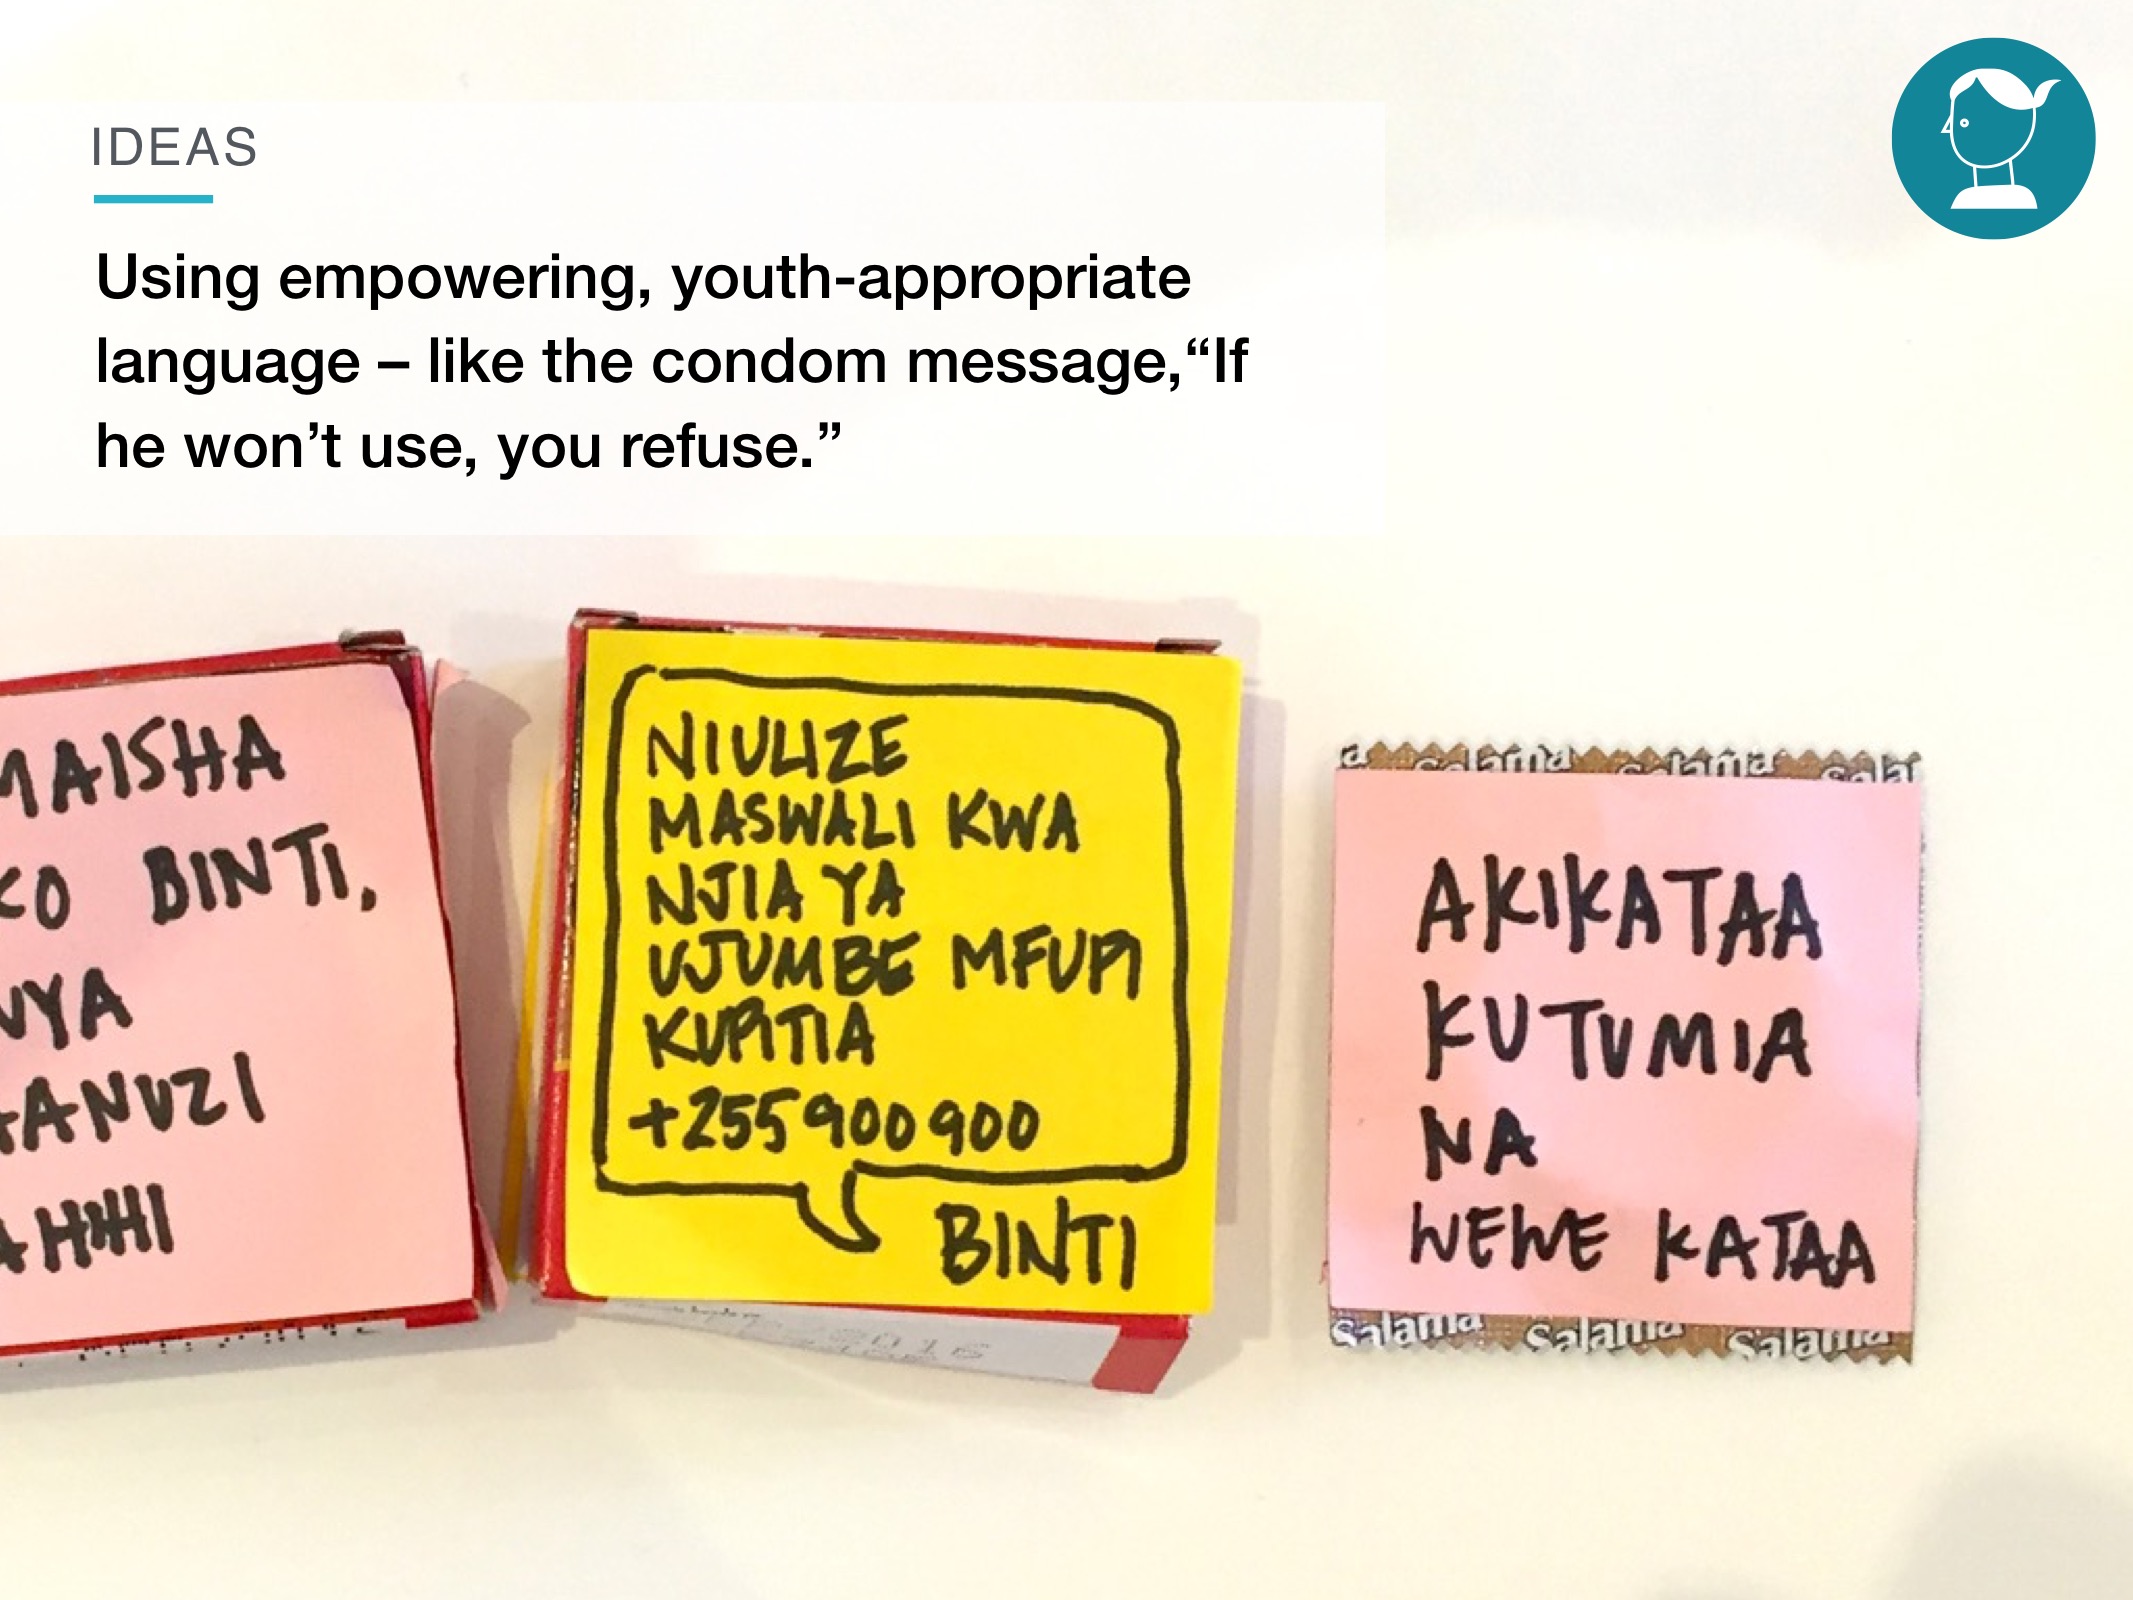 IDEAS
Using empowering, youth-appropriate
language – like the condom message,“If
he won’t use, you refuse.”
MAISHA
KO BINTI,
NYA
ANUZI
AHIHI
NIULIZE
MASWALI KWA
NJIA YA
UJUMBE MFUPI
KUPITIA
+255 900 900
BINTI
2016
Salama Salama Salama
AKIKATAA
KUTUMIA
NA
WEWE KATAA
Salama Salama Salama